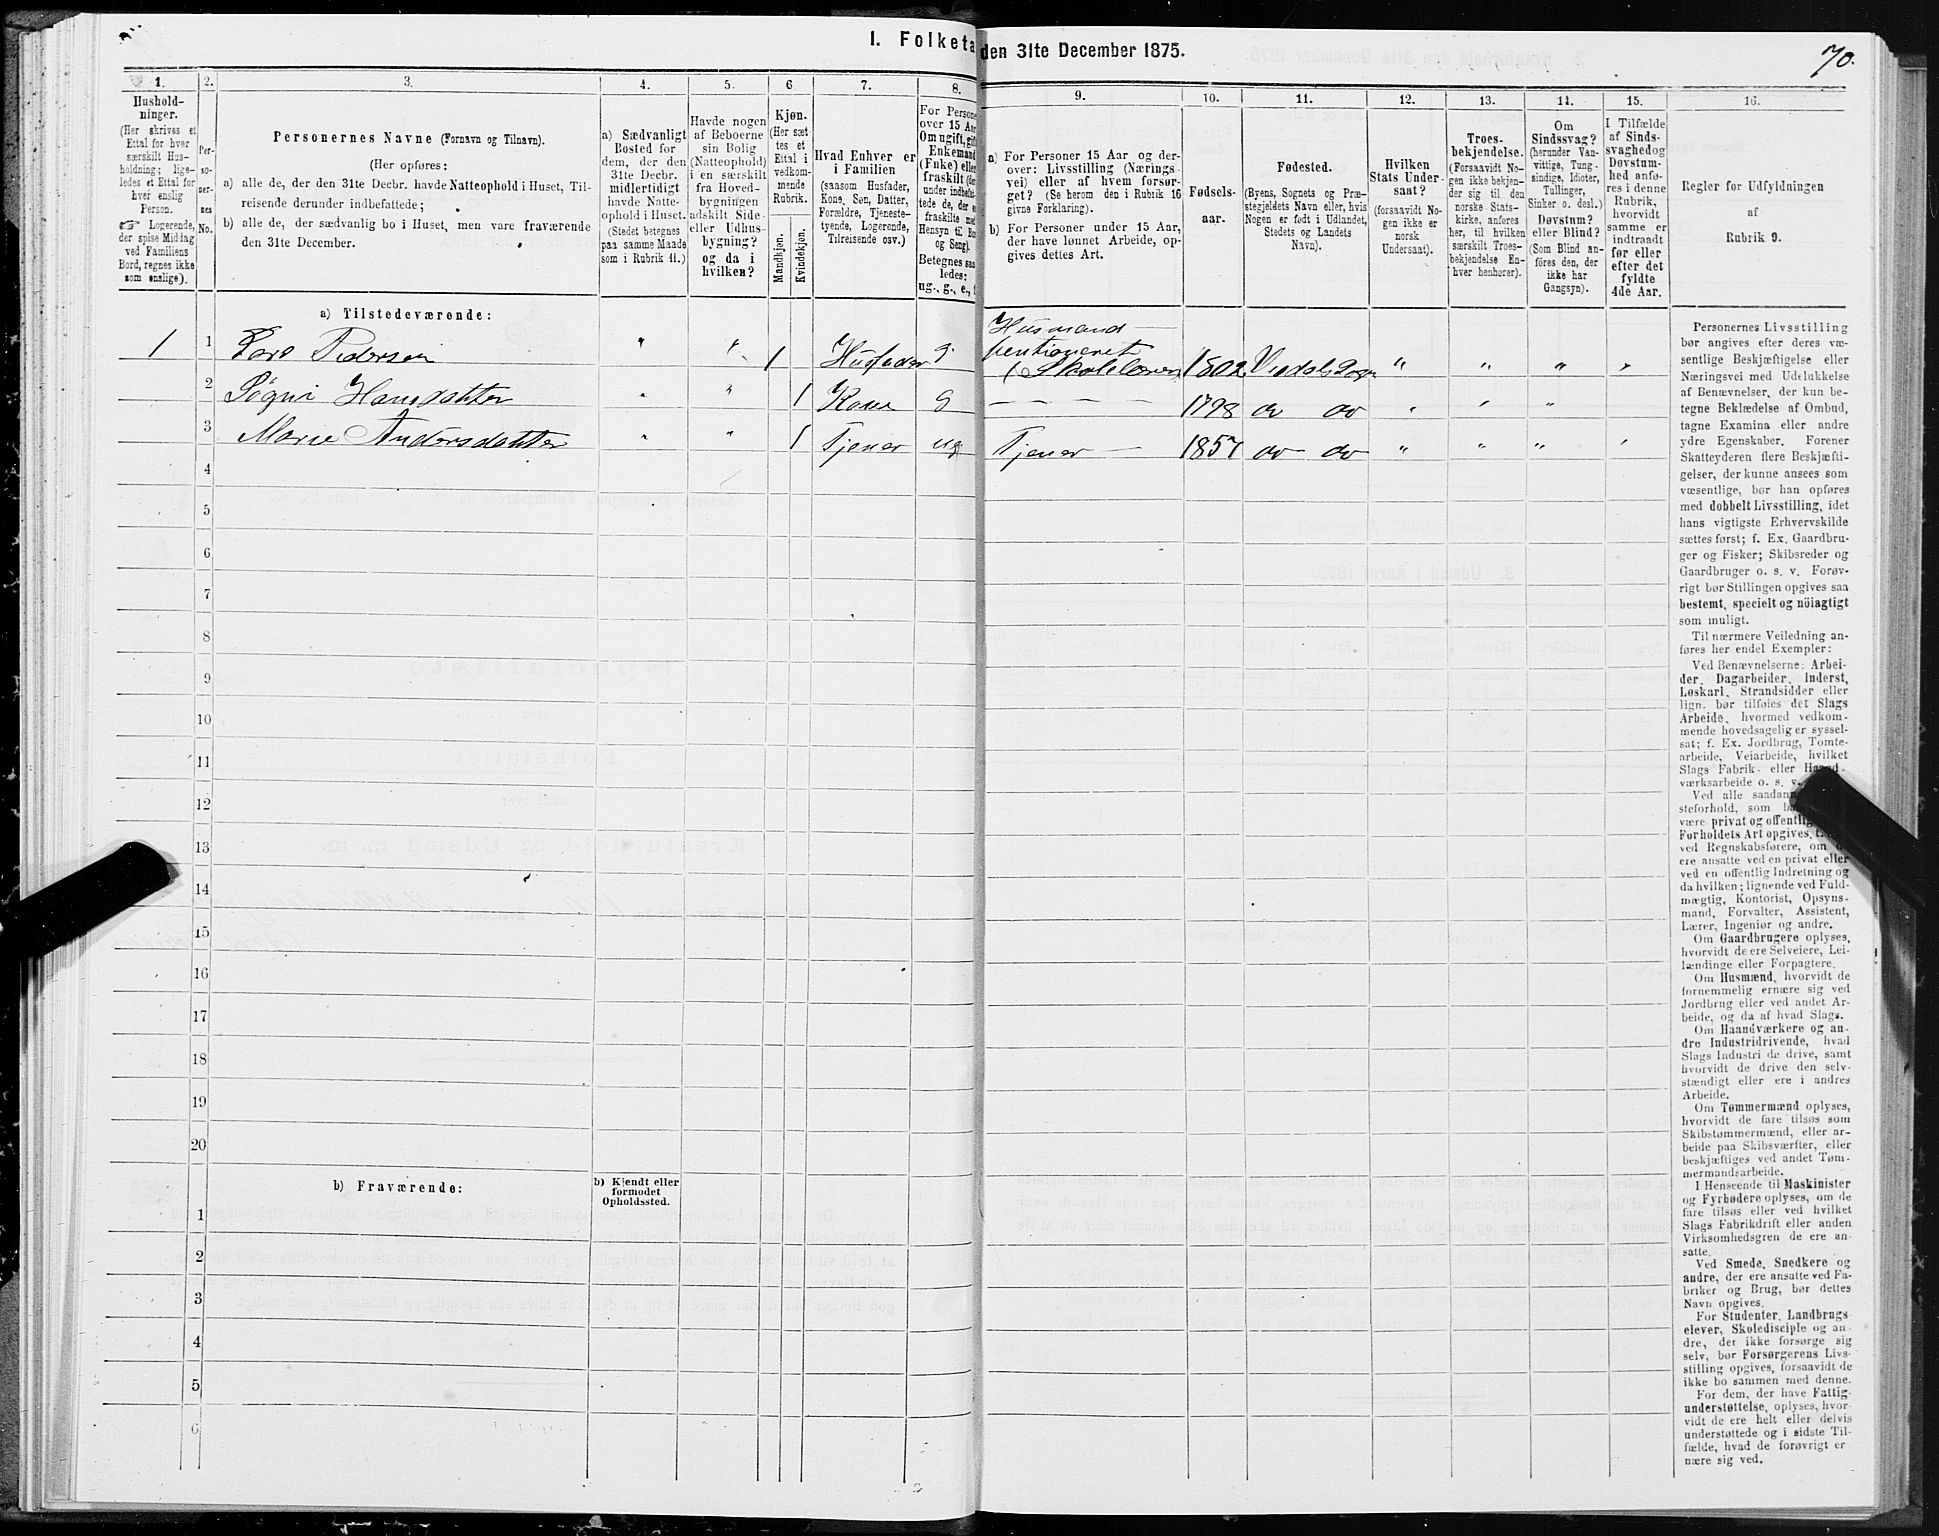 I. Folketa den 31te December 1875.
70.
1.
Hushold-
ninger.
(Her skrives et
Ettal for hver
særskilt Hus-
holdning; lige-
ledes et Ettal for
hver enslig
Person.
☞ Logerende,
der spise Middag
ved Familiens
Bord, regnes ikke
som enslige).
2.
Per-
so-
ner-
nes
No.
3.
Personernes Navne (Fornavn og Tilnavn).
(Her opføres:
a) alle de, der den 31te Decbr. havde Natteophold i Huset, Til-
reisende derunder indbefattede;
b) alle de, der sædvanlig bo i Huset, men vare fraværende
den 31te December.
4.
a) Sædvanligt
Bosted for
dem, der den
31te Decbr.
midlertidigt
havde Natte-
ophold i Huset.
(Stedet betegnes
paa samme Maade
som i Rubrik 11.)
5.
Havde nogen
af Beboerne
sin Bolig
(Natteophold)
i en særskilt
fra Hoved-
bygningen
adskilt Side-
eller Udhus-
bygning?
og da i
hvilken?
6
Kjøn.
(Her sæt-
tes et
Ettal i
vedkom-
mende
Rubrik.
Mandkjøn.
Kvindekjøn.
7.
Hvad Enhver er
i Familien
(saasom Husfader,
Kone, Søn, Datter,
Forældre, Tjeneste-
tyende, Logerende,
Tilreisende osv.)
8.
For Persone
over 15 Aar
Om ugift, gift
Enkemand
(Enke) eller
fraskilt (der-
under indbefat-
tede de, der er
fraskilte med
Hensyn til Bor
og Seng).
Betegnes saa
ledes:
ug., g., e., f
9.
a) For Personer 15 Aar og der-
over: Livsstilling (Nærings-
vei) eller af hvem forsør-
get? (Se herom den i Rubrik 16
givne Forklaring).
b) For Personer under 15 Aar,
der have lønnet Arbeide, op-
gives dettes Art.
10.
Fødsels-
aar.
11.
Fødested.
(Byens, Sognets og Præ-
stegjeldets Navn eller, hvis
Nogen er født i Udlandet,
Stedets og Landets
Navn).
12.
Hvilken
Stats Under-
saat?
(forsaavidt No-
gen ikke er
norsk
Undersaat).
13.
Troes-
bekjendelse.
(Forsaavidt No-
gen ikke bekjen-
der sig til den
norske Stats-
kirke, anføres
her, til hvilken
særskilt Troes-
bekjendelse En-
hver henhører).
14.
Om
Sindssvag?
(herunder Van-
vittige, Tung-
sindige, Idioter,
Tullinger,
Sinker o. desl.)
Døvstum?
eller Blind?
(Som Blind an-
føres den, der
ikke har
Gangsyn).
15.
I Tilfælde
af Sinds-
svaghed og
Døvstum-
hed anfø-
res i denne
Rubrik,
hvorvidt
samme er
indtraadt
før eller
efter det
fyldte
4de Aar.
16.
Regler for Udfyldningen
af
Rubrik 9.
a) Tilstedeværende:
1 1 Lars Pedersen " " 1 Husfader g Husmand —
pentioneret
Skolelærer 1802 Verdals Sogn " " " "
2 Søgni Hansdatter " " 1 Kone g — — — — 1798 do do " " "
3 Marie Andersdatter " " 1 Tjener ug Tjener — 1857 do do " " " "
4
5
6
7
8
9
10
11
12
13
14
15
16
17
18
19
20
b) Fraværende:
b) Kjendt eller
formodet
Opholdssted.
1
2
3
4
5
6
Personernes Livsstilling
bør angives efter deres væ-
sentlige Beskjæftigelse eller
Næringsvei med Udelukkelse
af Benævnelser, der kun be-
tegne Beklædelse af Ombud,
tagne Examina eller andre
ydre Egenskaber. Forener
Skatteyderen flere Beskjæfti-
gelser, der kunne ansees som
væsentlige, bør han opføres
med dobbelt Livsstilling, idet
hans vigtigste Erhvervskilde
sættes først; f. Ex. Gaardbru-
ger og Fisker; Skibsreder og
Gaardbruger o. s. v. Forøv-
rigt bør Stillingen opgives saa
bestemt, specielt og nöiagtigt
som muligt.
Til nærmere Veiledning an-
føres her endel Exempler:
Ved Benævnelserne: Arbei-
der, Dagarbeider, Inderst,
Løskarl, Strandsidder eller
lign. bør tilføies det Slags
Arbeide, hvormed vedkom-
mende hovedsagelig er syssel-
sat; f. Ex. Jordbrug, Tomte-
arbeide, Veiarbeide, hvilket
Slags Fabrik- eller Haand-
værksarbeide o. s. v.
Ved alle saadann
steforhold, som b
være privat og offentlig
Forholdets Art opgives, f.
ved Regnskabsførere, om d
ere ansatte ved en privat eller
ved en offentlig Indretning og
da hvilken; lignende ved Fuld-
mægtig, Kontorist, Opsyns-
mand, Forvalter, Assistent,
Lærer, Ingeniør og andre.
Om Gaardbrugere oplyses,
hvorvidt de ere Selveiere, Lei-
lændinge eller Forpagtere.
Om Husmænd, hvorvidt de
fornemmelig ernære sig ved
Jordbrug eller ved andet Ar-
beide, og da af hvad Slags.
Om Haandværkere og an-
dre Industridrivende, hvad
Slags Industri de drive, samt
hvorvidt de drive den selv-
stændigt eller ere i andres
Arbeide.
Om Tømmermænd oplyses,
hvorvidt de fare tilsøs som
Skibstømmermænd, eller ar-
beide paa Skibsværfter, eller
beskjæftiges ved andet Tøm-
mermandsarbeide.
I Henseende til Maskinister
og Fyrbødere oplyses, om de
fare tilsøs eller ved hvilket
Slags Fabrikdrift eller anden
Virksomhedsgren de ere an-
satte.
Ved Smede, Snedkere og
andre, der ere ansatte ved Fa-
briker og Brug, bør dettes
Navn opgives.
For Studenter, Landbrugs-
elever, Skoledisciple og an-
dre, der ikke forsørge sig
selv, bør Forsørgerens Livs-
stilling opgives, forsaavidt de
ikke bo sammen med denne.
For dem, der have Fattig-
understøttelse, oplyses, hvor-
vidt de ere helt eller delvis
understøttede og i sidste Til-
fælde, hvad de forøvrigt er-
nære sig ved.